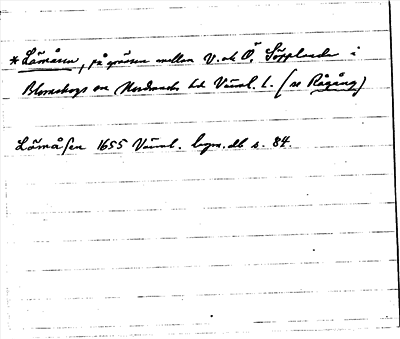 * Lömåsen, på gränsen mellan V. och Ö. Sörplanda i
Blomskogs sn Nordmarks hd Värml. l. (se Rågång)
Lömåsen 1655 Värml. lagm. db s. 84.